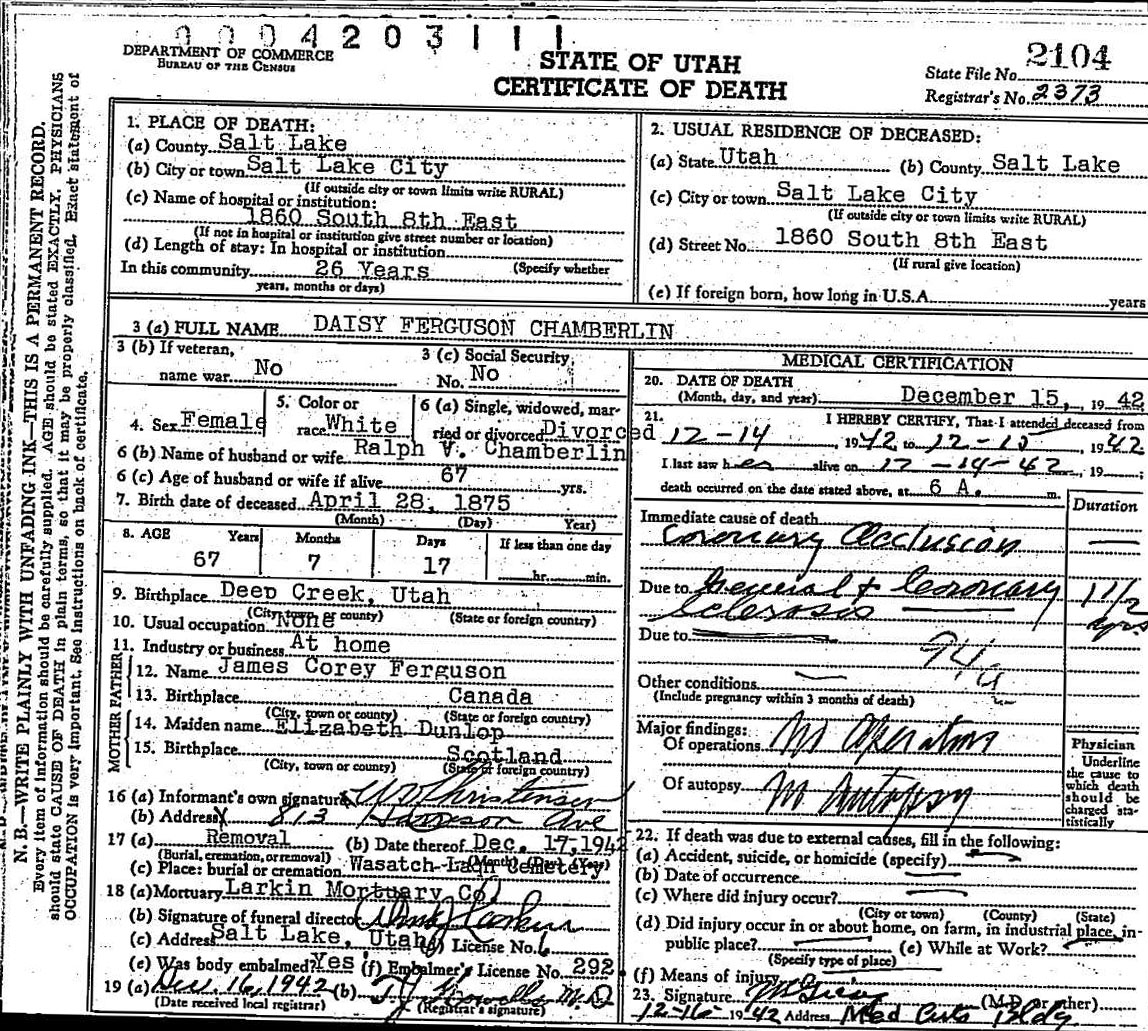 0004203111
DEPARTMENT OF COMMERCE
BUREAU OF THE CENSUS
STATE OF UTAH
CERTIFICATE OF DEATH
2104
State File No.
Registrar's No. 2373
N. B.—WRITE PLAINLY WITH UNFADING INK—THIS IS A PERMANENT RECORD.
Every item of information should be carefully supplied. AGE should be stated EXACTLY. PHYSICIANS
should state CAUSE OF DEATH in plain terms, so that it may be properly classified. Exact statement of
OCCUPATION is very important. See instructions on back of certificate.
1. PLACE OF DEATH:
(a) County Salt Lake
(b) City or town Salt Lake City
(If outside city or town limits write RURAL)
(c) Name of hospital or institution:
1860 South 8th East
(If not in hospital or institution give street number or location)
(d) Length of stay: In hospital or institution
In this community 26 Years (Specify whether
years, months or days)
2. USUAL RESIDENCE OF DECEASED:
(a) State Utah (b) County Salt Lake
(c) City or town Salt Lake City
(If outside city or town limits write RURAL)
(d) Street No. 1860 South 8th East
(If rural give location)
(e) If foreign born, how long in U.S.A. years
3 (a) FULL NAME DAISY FERGUSON CHAMBERLIN
3 (b) If veteran, name war No
3 (c) Social Security No. No
4. Sex Female
5. Color or race White
6 (a) Single, widowed, married or divorced Divorced
6 (b) Name of husband or wife Ralph V. Chamberlin
6 (c) Age of husband or wife if alive 67 yrs.
7. Birth date of deceased April 28, 1875
(Month) (Day) Year)
8. AGE Years Months Days If less than one day
67 7 17 hr. min.
9. Birthplace Deep Creek, Utah
(City, town or county) (State or foreign country)
10. Usual occupation None
11. Industry or business At home
FATHER
12. Name James Corey Ferguson
13. Birthplace Canada
(City, town or county) (State or foreign country)
MOTHER
14. Maiden name Elizabeth Dunlop
15. Birthplace Scotland
(City, town or county) (State or foreign country)
16 (a) Informant's own signature Christensen
(b) Address 813 Harrison Ave
17 (a) Removal (b) Date thereof Dec. 17, 1942
(Burial, cremation, or removal) (Month) (Day) (Year)
(c) Place: burial or cremation Wasatch-Lawn Cemetery
18 (a) Mortuary Larkin Mortuary Co.
(b) Signature of funeral director Larkin
(c) Address Salt Lake, Utah (d) License No. 6
(e) Was body embalmed? Yes (f) Embalmer's License No. 292.
19 (a) Dec 16, 1942 (b) T J Howells M.D
(Date received local registrar) (Registrar's signature)
MEDICAL CERTIFICATION
20. DATE OF DEATH
(Month, day, and year) December 15, 1942
21. I HEREBY CERTIFY, That I attended deceased from
12-14, 1942 to 12-15, 1942
I last saw her alive on 12-14-42, 19
death occurred on the date stated above, at 6 A. m.
Duration
Immediate cause of death
Coronary Occlusion
Due to General & Coronary 1 1/2
Sclerosis yrs
Due to
94a
Other conditions
(Include pregnancy within 3 months of death)
Major findings:
Of operations No Operation
Of autopsy No Autopsy
Physician
Underline
the cause to
which death
should be
charged sta-
tistically
22. If death was due to external causes, fill in the following:
(a) Accident, suicide, or homicide (specify)
(b) Date of occurrence
(c) Where did injury occur?
(City or town) (County) (State)
(d) Did injury occur in or about home, on farm, in industrial place, in-
public place? (e) While at Work?
(Specify type of place)
(f) Means of injury
23. Signature (M.D. or other)
12-16- 1942 Address Med Arts Bldg